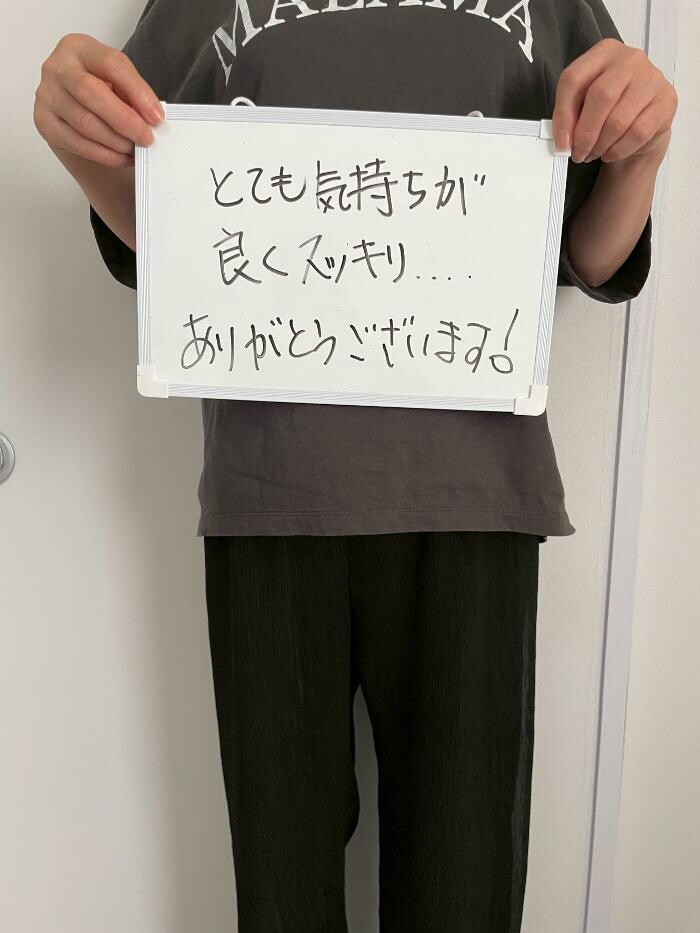 MALAMA
とても気持ちが
良くスッキリ....
ありがとうございます!